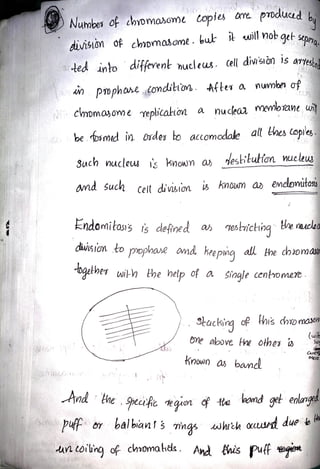 Number of chromasome copies are produced by
division of chromasome. but it will not get sepra-
-ted into different nucleus. cell division is arrested
in prophase condition. After a number of
chromasome replication a nuclear membrane will
be formed in order to accomodate all thes copies.
Such nucleus is known as restitution nucleus
and such cell division is known as endomitosis
Endomitosis is defined as restricting the nuclea
division to prophase and keeping all the chromaso
together with the help of a single centromere.
Stacking of this chromasom
one above the other is
known as band
And the specific region of the band get enlarged
puff or balbiani's rings which occured due to the
un coiling of chromatids. And this puff